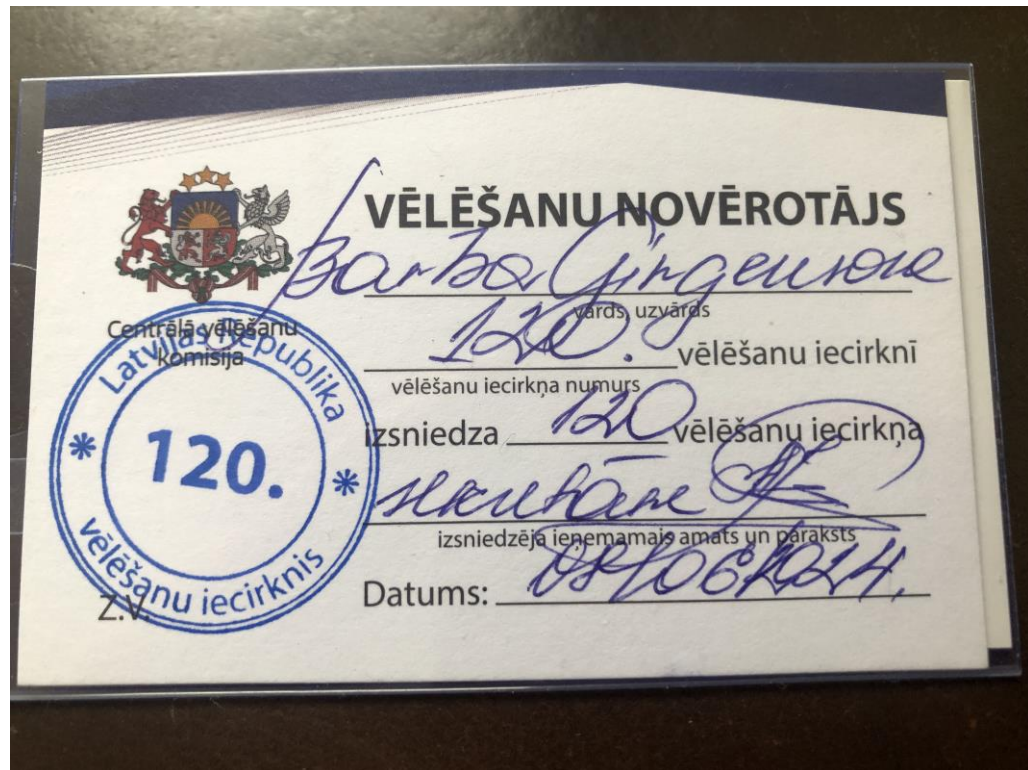 VĒLĒŠANU NOVĒROTĀJS
vārds, uzvārds
Centrālā vēlēšanu
Komisija
120. vēlēšanu iecirknī
vēlēšanu iecirkņa numurs
izsniedza 120 vēlēšanu iecirkņa
sekretāre
izsniedzēja ieņemamais amats un paraksts
Datums: 08/06/2024.
Z.V.
Latvijas Republika
120.
vēlēšanu iecirknis